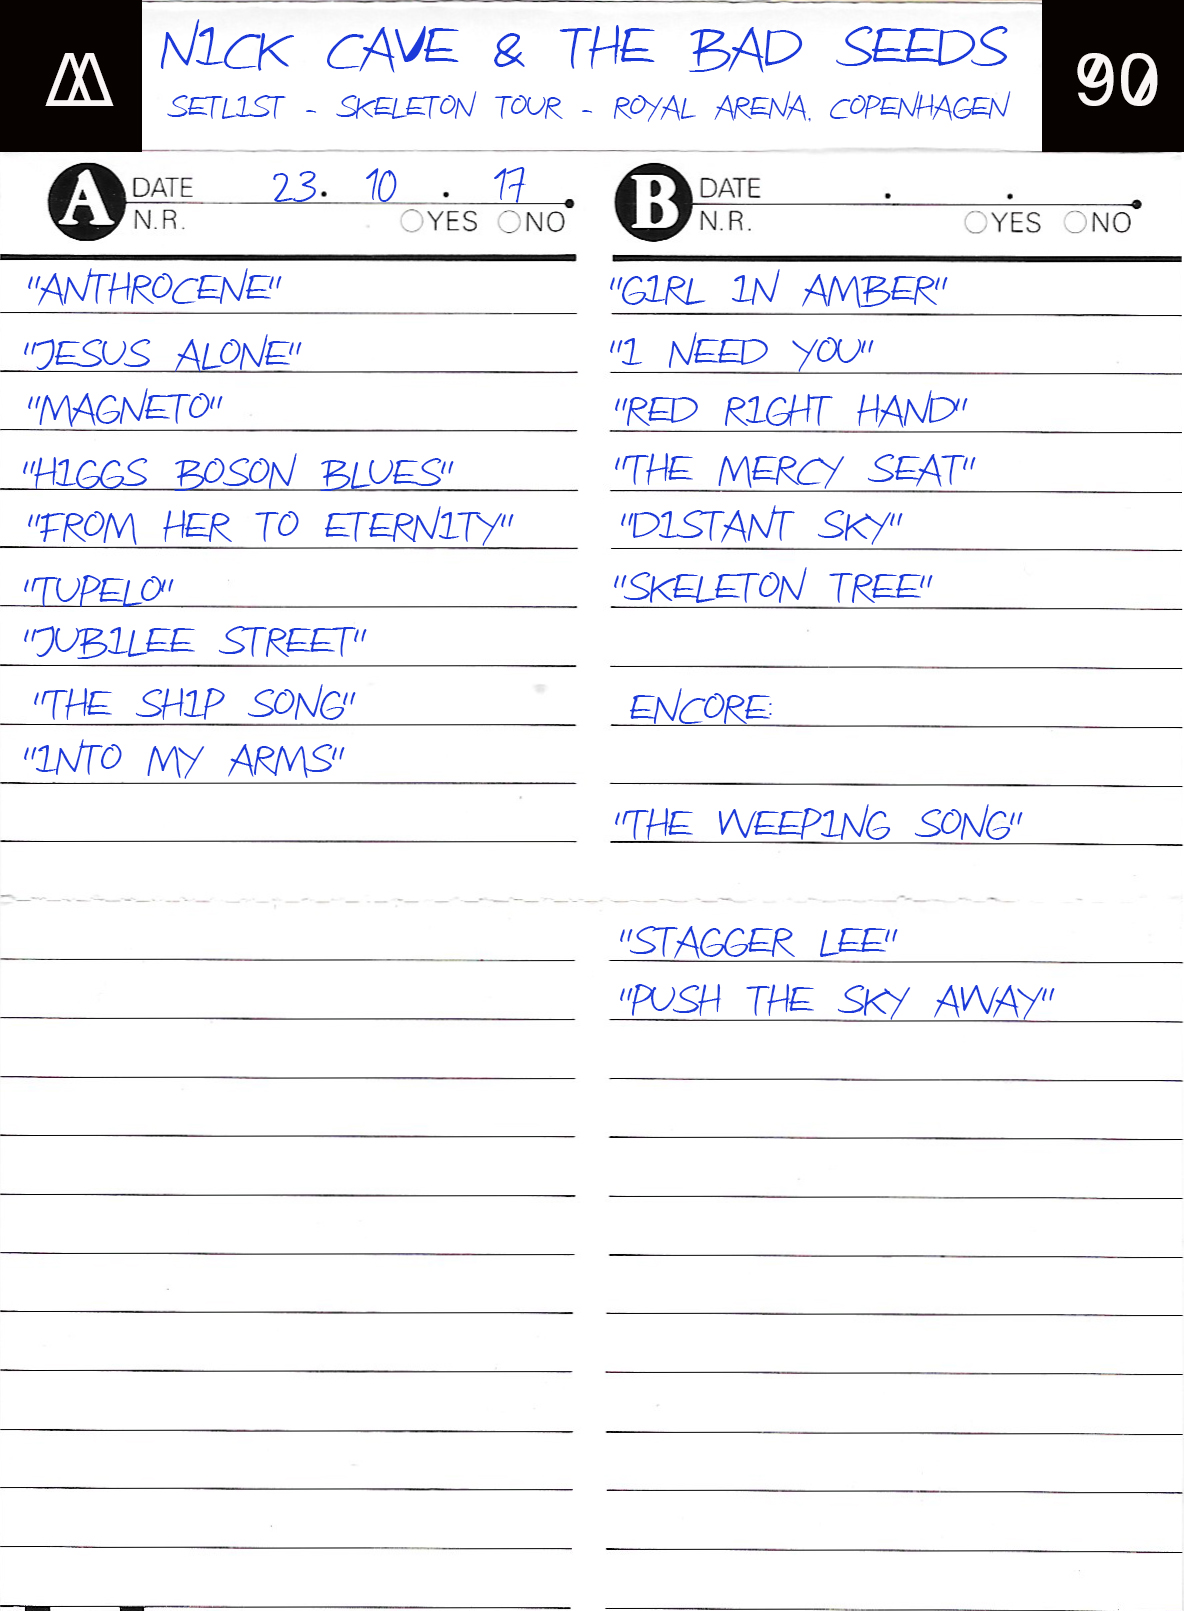 NICK CAVE & THE BAD SEEDS
SETLIST - SKELETON TOUR - ROYAL ARENA, COPENHAGEN
90
A DATE 23. 10 . 17
N.R. YES NO
"ANTHROCENE"
"JESUS ALONE"
"MAGNETO"
"HIGGS BOSON BLUES"
"FROM HER TO ETERNITY"
"TUPELO"
"JUBILEE STREET"
"THE SHIP SONG"
"INTO MY ARMS"
B DATE . .
N.R. YES NO
"GIRL IN AMBER"
"I NEED YOU"
"RED RIGHT HAND"
"THE MERCY SEAT"
"DISTANT SKY"
"SKELETON TREE"
ENCORE:
"THE WEEPING SONG"
"STAGGER LEE"
"PUSH THE SKY AWAY"